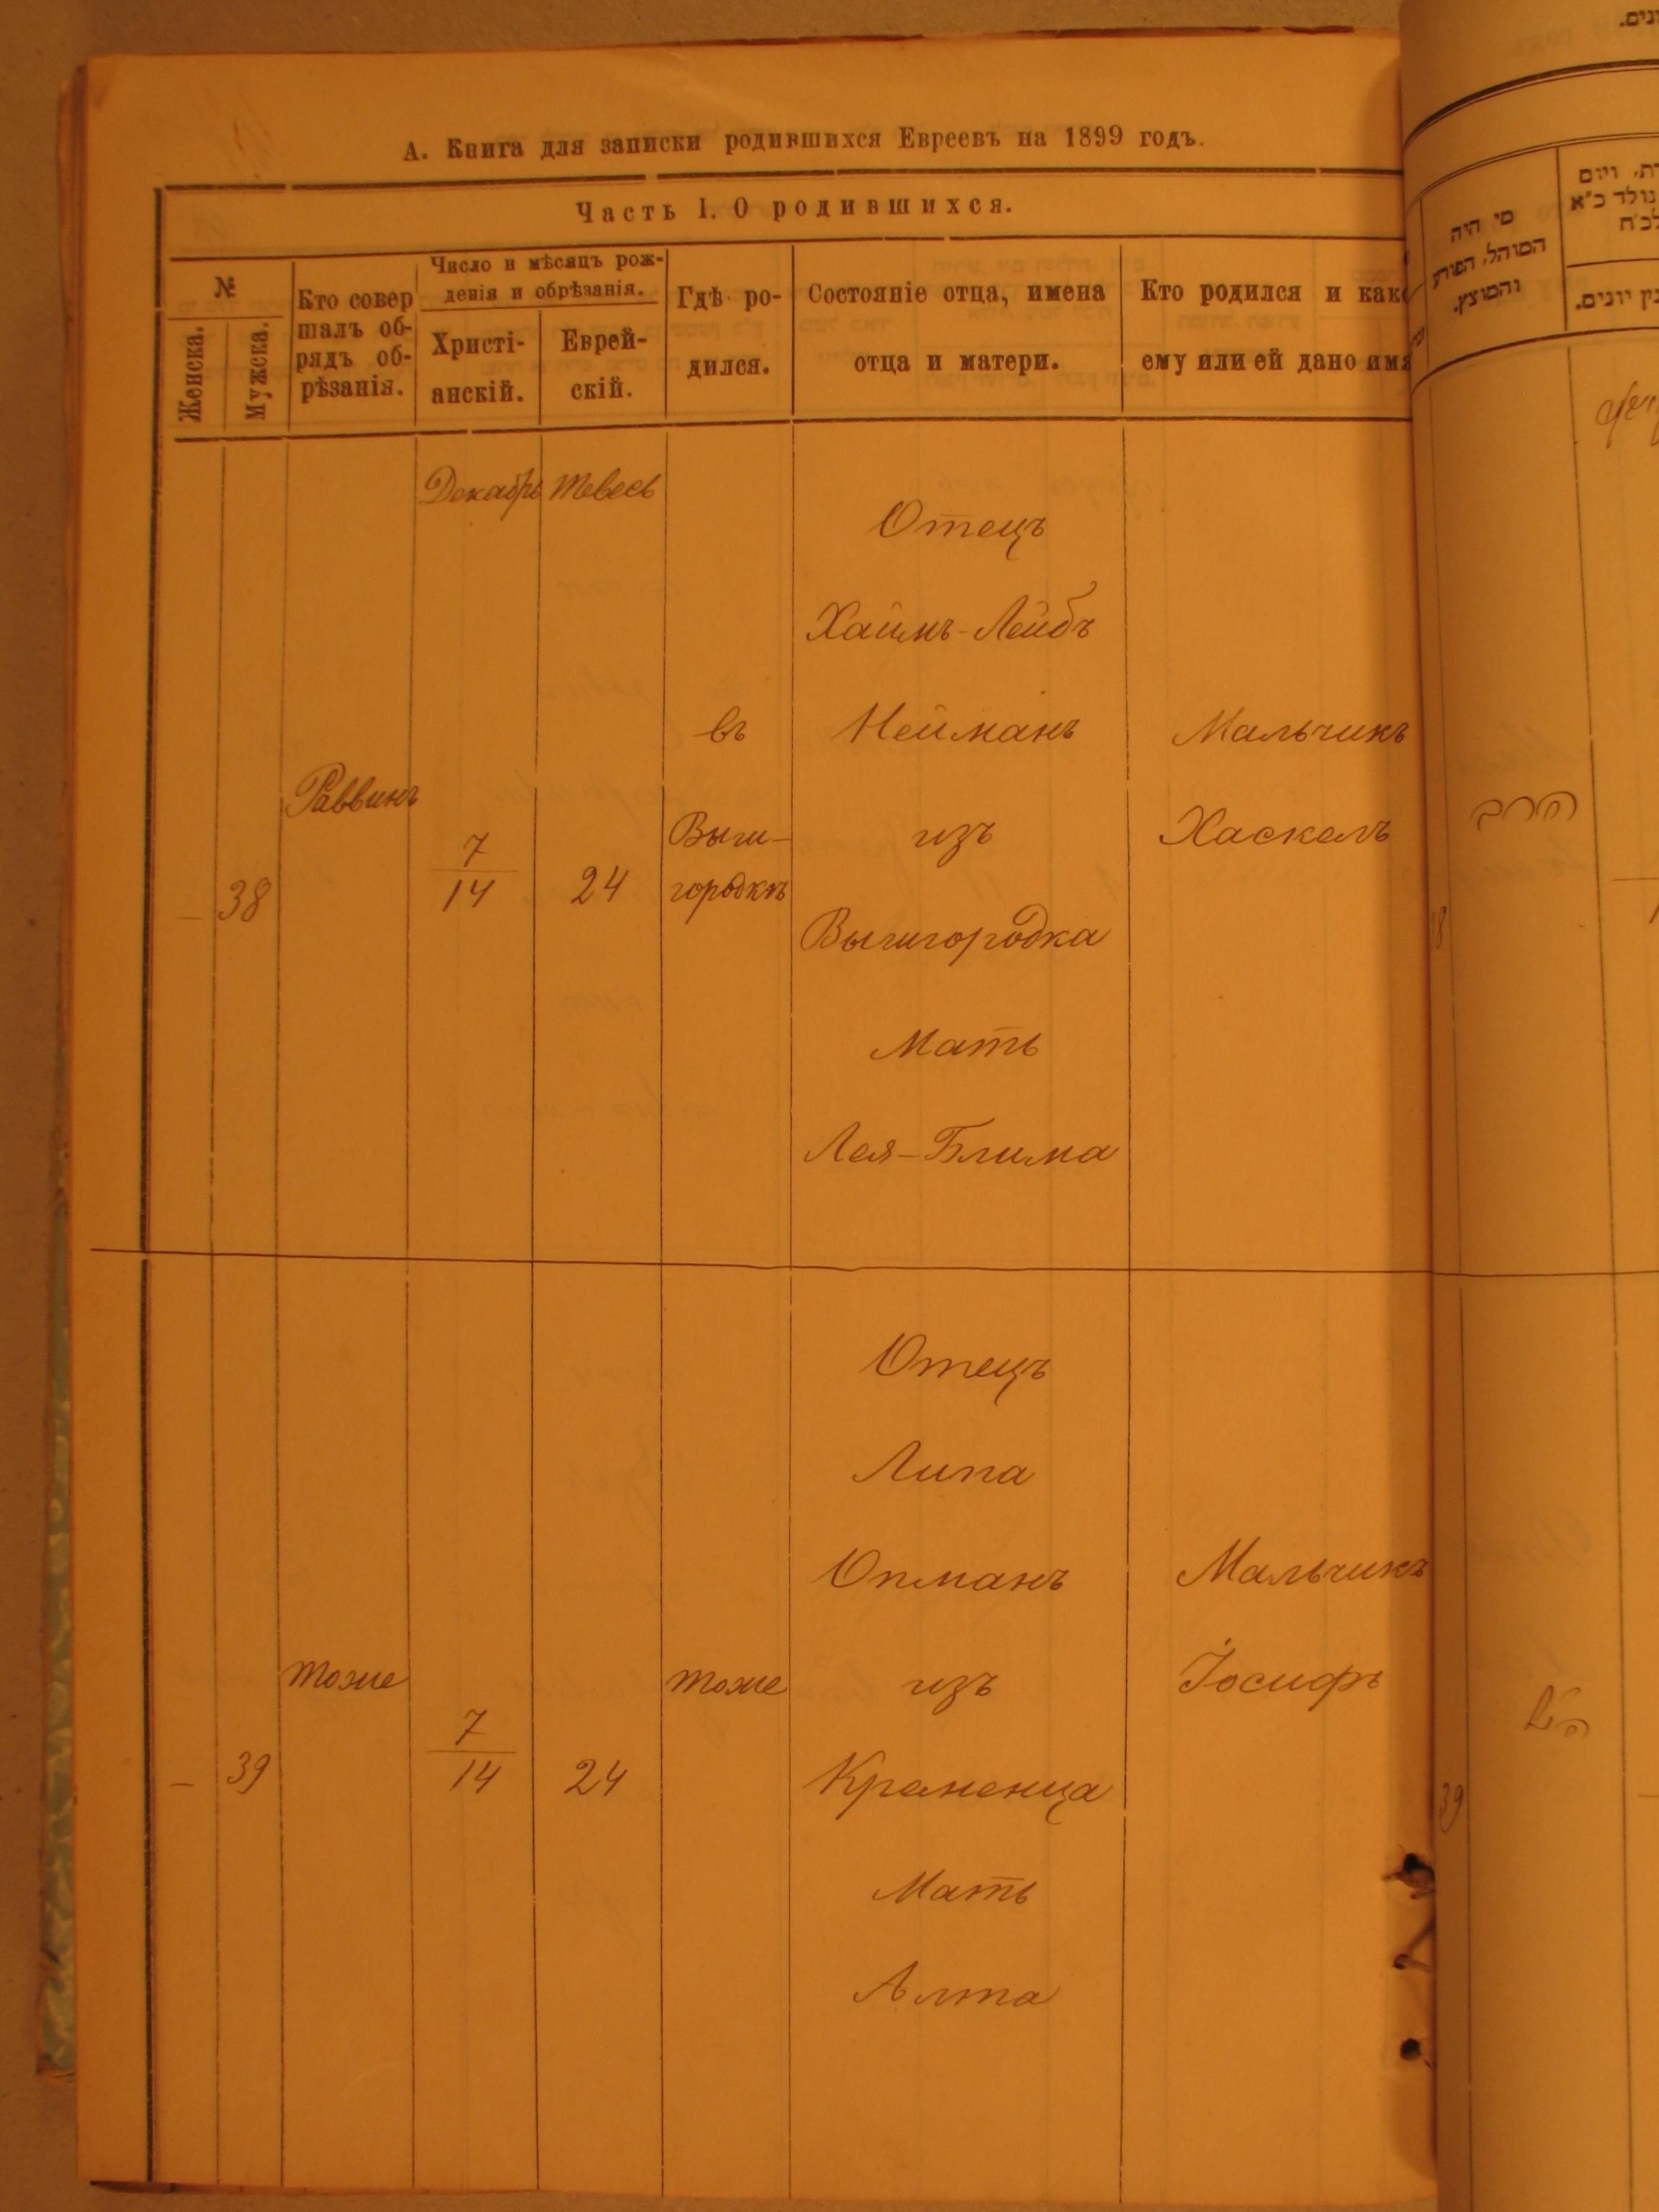 А. Книга для записки родившихся Евреевъ на 1899 годъ.
Часть I. О родившихся.
№
Женска.
Мужска.
Кто совер
шалъ об-
рядъ об-
рѣзанія.
Число и мѣсяцъ рож-
денія и обрѣзанія.
Христі-
анскій.
Еврей-
скій.
Гдѣ ро-
дился.
Состояніе отца, имена
отца и матери.
Кто родился и како
ему или ей дано имя
Декабрь Тевесъ
–
38
Раввинъ
7
14
24
въ
Выши-
городкѣ
Отецъ
Хаимъ-Лейбъ
Нейманъ
изъ
Вышгородка
Мать
Лея-Блима
Мальчикъ
Хаскель
–
39
тоже
7
14
24
тоже
Отецъ
Липа
Опманъ
изъ
Кременца
Мать
Алта
Мальчикъ
Іосифъ
מי היה
המוהל, הפורע
והמוצץ.
ויום
נולד כ"א
יונים.
הרב
38
39